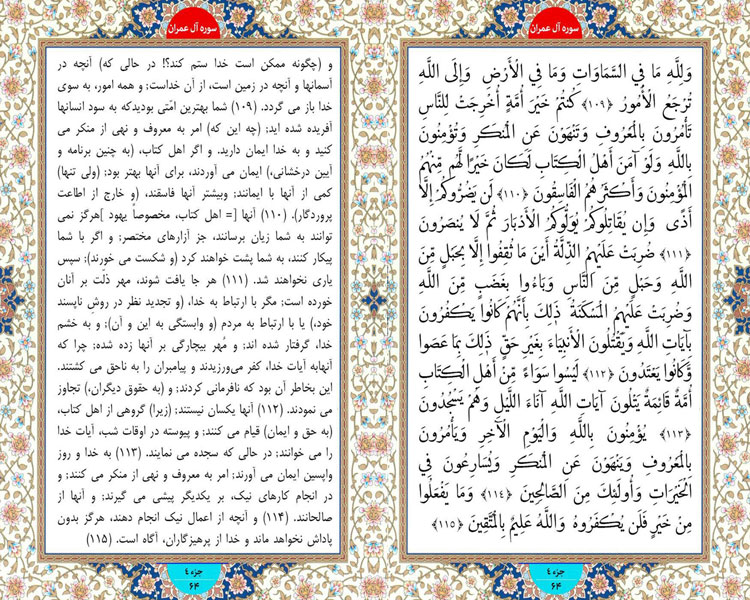 سوره آل عمران
وَلِلَّهِ مَا فِي السَّمَاوَاتِ وَمَا فِي الْأَرْضِ وَإِلَى اللَّهِ
تُرْجَعُ الْأُمُورُ ﴿۱۰۹﴾ كُنتُمْ خَيْرَ أُمَّةٍ أُخْرِجَتْ لِلنَّاسِ
تَأْمُرُونَ بِالْمَعْرُوفِ وَتَنْهَوْنَ عَنِ الْمُنكَرِ وَتُؤْمِنُونَ
بِاللَّهِ وَلَوْ آمَنَ أَهْلُ الْكِتَابِ لَكَانَ خَيْرًا لَّهُم مِّنْهُمُ
الْمُؤْمِنُونَ وَأَكْثَرُهُمُ الْفَاسِقُونَ ﴿۱۱۰﴾ لَن يَضُرُّوكُمْ إِلَّا
أَذًى وَإِن يُقَاتِلُوكُمْ يُوَلُّوكُمُ الْأَدْبَارَ ثُمَّ لَا يُنصَرُونَ
﴿۱۱۱﴾ ضُرِبَتْ عَلَيْهِمُ الذِّلَّةُ أَيْنَ مَا ثُقِفُوا إِلَّا بِحَبْلٍ مِّنَ
اللَّهِ وَحَبْلٍ مِّنَ النَّاسِ وَبَاءُوا بِغَضَبٍ مِّنَ اللَّهِ
وَضُرِبَتْ عَلَيْهِمُ الْمَسْكَنَةُ ذَلِكَ بِأَنَّهُمْ كَانُوا يَكْفُرُونَ
بِآيَاتِ اللَّهِ وَيَقْتُلُونَ الْأَنبِيَاءَ بِغَيْرِ حَقٍّ ذَلِكَ بِمَا عَصَوا
وَّكَانُوا يَعْتَدُونَ ﴿۱۱۲﴾ لَيْسُوا سَوَاءً مِّنْ أَهْلِ الْكِتَابِ
أُمَّةٌ قَائِمَةٌ يَتْلُونَ آيَاتِ اللَّهِ آنَاءَ اللَّيْلِ وَهُمْ يَسْجُدُونَ
﴿۱۱۳﴾ يُؤْمِنُونَ بِاللَّهِ وَالْيَوْمِ الْآخِرِ وَيَأْمُرُونَ
بِالْمَعْرُوفِ وَيَنْهَوْنَ عَنِ الْمُنكَرِ وَيُسَارِعُونَ فِي
الْخَيْرَاتِ وَأُولَئِكَ مِنَ الصَّالِحِينَ ﴿۱۱۴﴾ وَمَا يَفْعَلُوا
مِنْ خَيْرٍ فَلَن يُكْفَرُوهُ وَاللَّهُ عَلِيمٌ بِالْمُتَّقِينَ ﴿۱۱۵﴾
جزء ٤
۶۴
سوره آل عمران
و (چگونه ممکن است خدا ستم کند؟! در حالی که) آنچه در
آسمانها و آنچه در زمین است، از آن خداست؛ و همه امور، به سوی
خدا باز می گردد. (۱۰۹) شما بهترین امّتی بودیدکه به سود انسانها
آفریده شده اید؛ (چه این که) امر به معروف و نهی از منکر می
کنید و به خدا ایمان دارید. و اگر اهل کتاب، (به چنین برنامه و
آیین درخشانی،) ایمان می آوردند، برای آنها بهتر بود؛ (ولی تنها)
کمی از آنها با ایمانند؛ وبیشتر آنها فاسقند، (و خارج از اطاعت
پروردگار). (۱۱۰) آنها [= اهل کتاب، مخصوصاً یهود ]هرگز نمی
توانند به شما زیان برسانند، جز آزارهای مختصر؛ و اگر با شما
پیکار کنند، به شما پشت خواهند کرد (و شکست می خورند)؛ سپس
یاری نخواهند شد. (۱۱۱) هر جا یافت شوند، مهر ذلّت بر آنان
خورده است؛ مگر با ارتباط به خدا، (و تجدید نظر در روش ناپسند
خود،) یا با ارتباط به مردم (و وابستگی به این و آن)؛ و به خشم
خدا، گرفتار شده اند؛ و مُهر بیچارگی بر آنها زده شده؛ چرا که
آنهابه آیات خدا، کفر می‌ورزیدند و پیامبران را به ناحق می کشتند.
این بخاطر آن بود که نافرمانی کردند؛ و (به حقوق دیگران،) تجاوز
می نمودند. (۱۱۲) آنها یکسان نیستند؛ (زیرا) گروهی از اهل کتاب،
(به حق و ایمان) قیام می کنند؛ و پیوسته در اوقات شب، آیات خدا
را می خوانند؛ در حالی که سجده می نمایند. (۱۱۳) به خدا و روز
واپسین ایمان می آورند؛ امر به معروف و نهی از منکر می کنند؛ و
در انجام کارهای نیک، بر یکدیگر پیشی می گیرند؛ و آنها از
صالحانند. (۱۱۴) و آنچه از اعمال نیک انجام دهند، هرگز بدون
پاداش نخواهد ماند و خدا از پرهیزگاران، آگاه است. (۱۱۵)
جزء ٤
۶۴